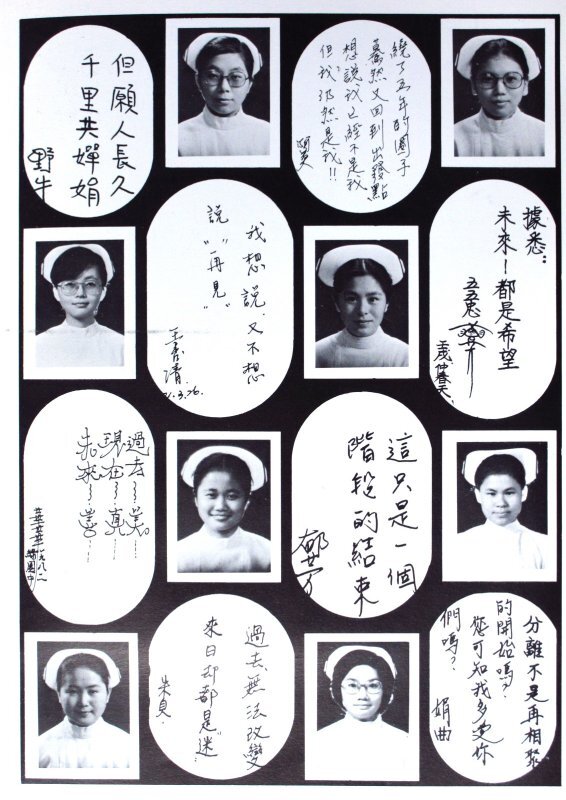 但願人長久
千里共嬋娟
野牛
繞了五年的圈子
驀然又回到出發點
想說我已經不是我
但我仍然是我!!
我想說,又不想
說"再見"
3.26.
據悉:
未來—都是希望
五忠
仲春天.
過去~~美。
現在~~真……
未來~~善……
一九八二
這只是一個
階段的結束
過去無法改變
來日却都是"迷"
朱貞
分離不是再相聚
的開始嗎?
您可知我多愛你
們嗎?
娟曲